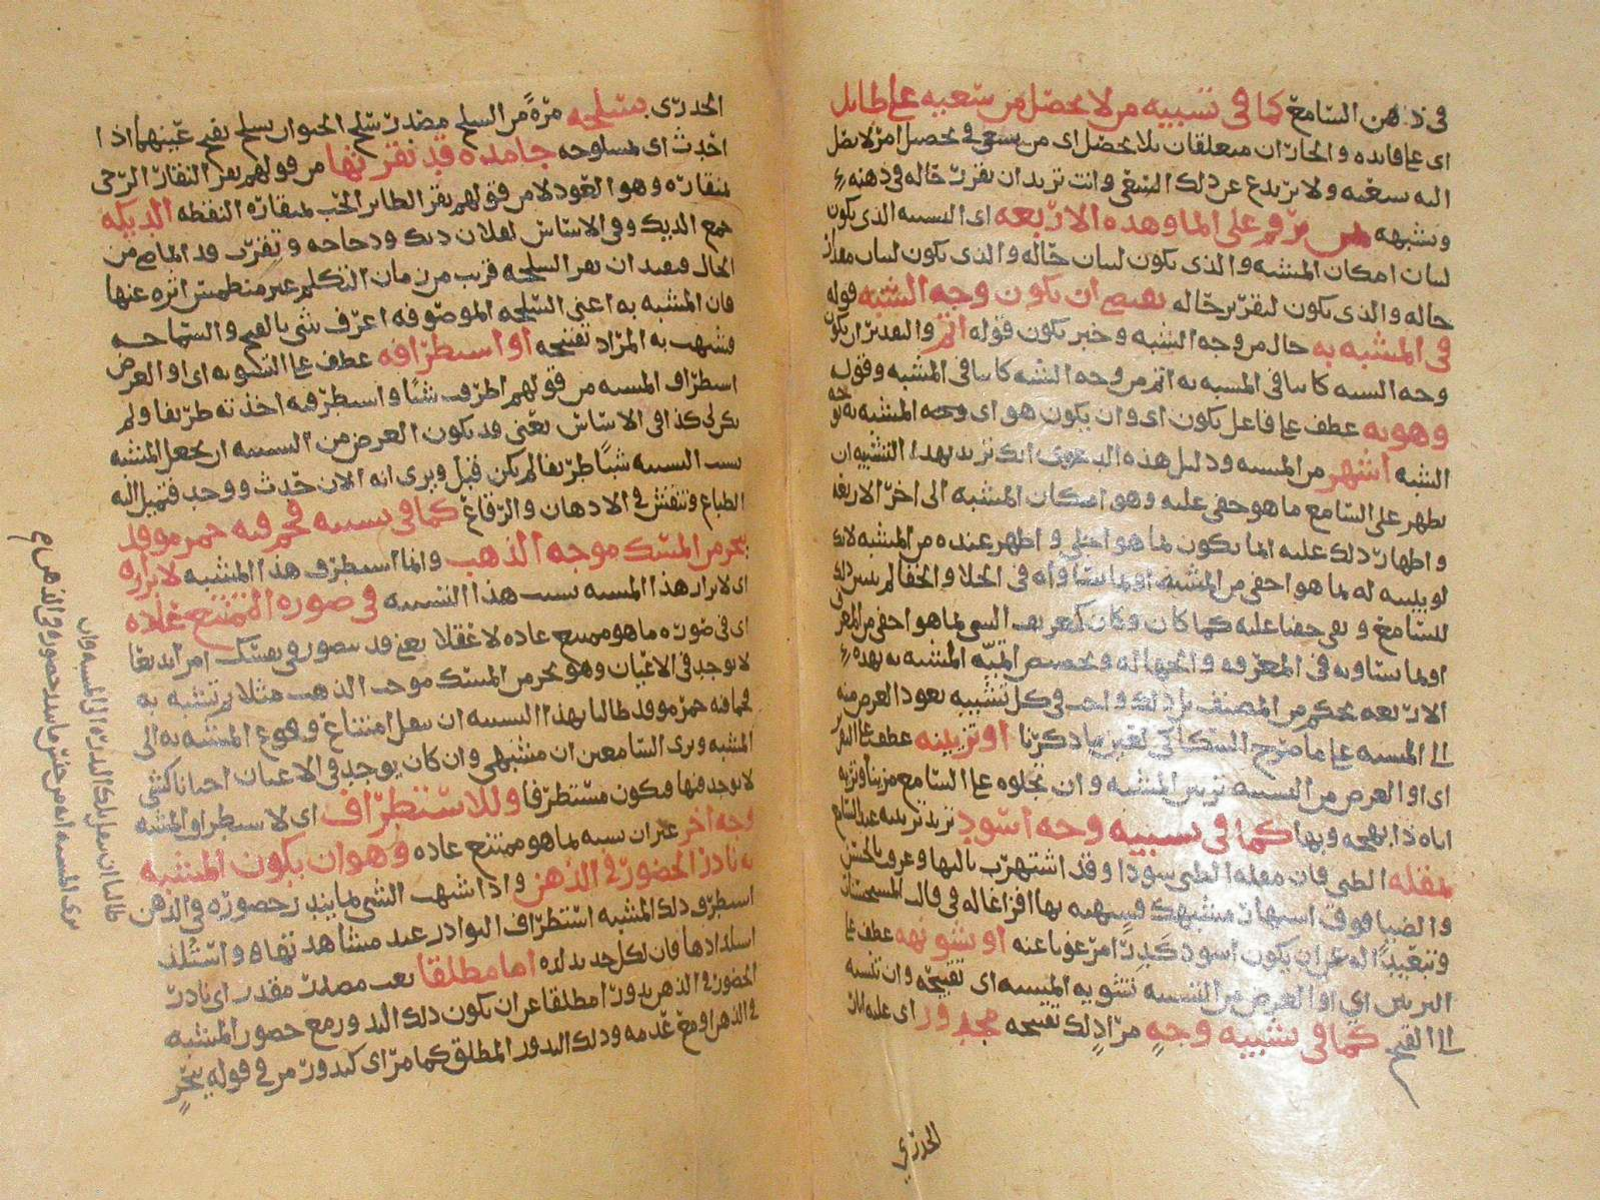 في ذهن السامع كما في تشبيه من لا يحصل من سعيه على طايل
اى على فايده و الجاران متعلقان بلا يحصل اى من يسعى في تحصيل امر لا يصل
اليه سعيه ولا يرتدع عن ذلك السعى وانت تريد ان تقرر حاله في ذهنه
وتشبهه بمن يرقم على الما وهذه الاربعه اى التشبيه الذى يكون
لبيان امكان المشبه والذى يكون لبيان حاله والذى يكون لبيان مقدار
حاله والذى يكون لتقرير حاله يقتضى ان يكون وجه الشبه قوله
في المشبه به حال من وجه الشبه و خبر يكون قوله اتم والتقدير ان يكون
وجه الشبه كاينا في المشبه به اتم من وجه الشبه كاينا في المشبه وقوله
وهو به عطف على فاعل يكون اى وان يكون هو اى وجه المشبه به
الشبه اشهر من المشبه ودليل هذه الدعوى انك تريد بهذا التشبيه ان
يظهر على السامع ما هو خفى عليه وهو امكان المشبه الى اخر الاربعه
و اظهار ذلك عليه انما يكون بما هو اجلى و اظهر عنده من المشبه لانك
لو بينته له بما هو اخفى من المشبه او بما يساويه في الجلا والخفا لم يتبين ذلك
للسامع و بقى خفيا عليه كما كان و كان كتعريف الشى بما هو اخفى من المعرف
او بما يساويه في المعرفه و الجهاله و تخصيص اتميه المشبه به بهذه
الاربعه تحكم من المصنف بل ذلك واجب في كل تشبيه يعود الغرض منه
الى المشبه على ما صرح السكاكى بقريب ما ذكرنا او تزيينه عطف على
اى او الغرض من التشبيه تزيين المشبه و ان تجلوه على السامع مزينا
اياه ذا بهجه وبها كما في تشبيه وجه اسود تريد تزيينه عند السامع
بمقله الظبى فان مقله الظبى سودا وقد اشتهرت بالبها وعرفت بالحسن
و الضيا فوق اشتهار مشبهك
ان يكون اسود كدرا مرغوبا عنه او تشويهه عطف على
التزيين اى او الغرض من التشبيه تشويه المشبه اى تقبيحه وان تنسبه
الى القبح كما في تشبيه وجه مراد لك تقبيحه مجدور اى عليه اثار
الجدرى
الجدرى بسلحه مره من السلح مصدر سلح الحيوان يسلح بفتح عينهما اذا
احدث اى بسلوحه جامده قد نقرتها من قولهم نقر النقار الرحى
بمنقاره وهو العود لا من قولهم نقر الطاير الحب بمنقاره التقطه الديكه
جمع الديك وفى الاساس لفلان ديك ودجاجه وتقرب قد الماضى من
الحال فيفيد ان نقر السلحه قريب من زمان التكلم غير منطمس اثره عنها
فان المشبه به اعنى السلحه الموصوفه اعرف شى بالقبح و السماجه
فشبهت به المراد تقبيحه او استطرافه عطف على التشويه اى او الغرض
استطراف المشبه من قولهم اطرف شيًا واستطرفه اخذته طريفا ولم
يكن لى كذا في الاساس يعنى قد يكون الغرض من التشبيه ان يجعل المشبه
بسبب التشبيه شيًا طريفا لم يكن قبل ويرى انه الان حدث و وجد فتميل اليه
الطباع وتنقش في الاذهان والرقاع كما في تشبيه فحم فيه جمر موقد
ببحر من المسك موجه الذهب وانما استطرف هذا المشبه لابرازه
اى لابراز هذا المشبه بسبب هذا التشبيه في صوره الممتنع عاده
اى في صوره ما هو ممتنع عاده لا عقلا يعنى قد يتصور في نفسك امرا بديعا
لا يوجد في الاعيان وهو بحر من المسك موجه الذهب مثلا ثم تشبه به
فحما فيه جمر موقد طالبا بهذا التشبيه ان ينقل امتناع وقوع المشبه به الى
المشبه ويرى السامعين ان مشبهى وان كان يوجد في الاعيان احيانا كشى
لا يوجد فيها فيكون مستطرفا وللاستطراف اى لاستطراف المشبه
وجه اخر غير ان يشبه بما هو ممتنع عاده وهو ان يكون المشبه
به نادر الحضور في الذهن و اذا اشبهت الشى بما يندر حضوره في الذهن
استطرف ذلك المشبه استطراف النوادر عند مشاهدتها و
استلذاذها فان لكل جديد لذه اما مطلقا نعت مصدر مقدر اى نادر
الحضور في الذهن ندورا مطلقا غير ان يكون ذلك الندور مع حضور المشبه
في الذهن او مع عدمه وذلك الندور المطلق كما مر اى كندور مر في قوله ببحر
طالبا ان ينقل تلك الندره الى المشبه وان
يرى المشبه انه من جنس ما يندر حضوره في الذهن